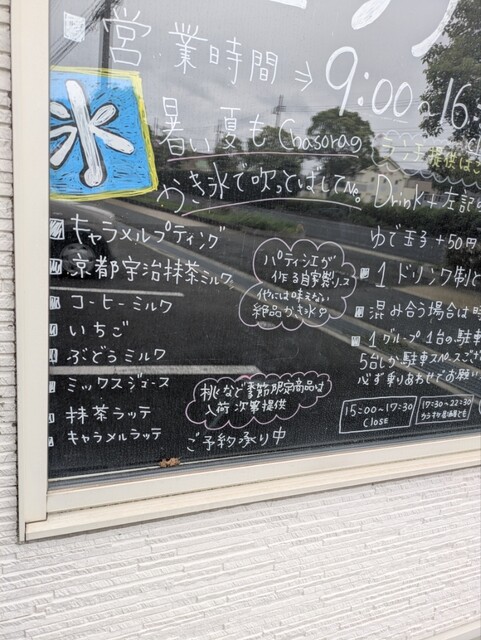 営業時間 ⇒ 9:00~16:
氷
暑い夏も Chasoraの
かき氷で吹っとばしてね。
Drink+左記の
ゆで玉子+50円
キャラメルプディング
京都宇治抹茶ミルク
コーヒーミルク
いちご
ぶどうミルク
ミックスジュース
抹茶ラッテ
キャラメルラッテ
パティシエが
作る自家製ソース
他には味えない
絶品かき氷
桃など季節限定商品は
入荷次第提供
ご予約承り中
1ドリンク制と
混み合う場合は時
1グループ1台の駐車
5台しか駐車スペースござ
必ず乗りあわせでお願い
15:00~17:30
CLOSE
17:30~22:30